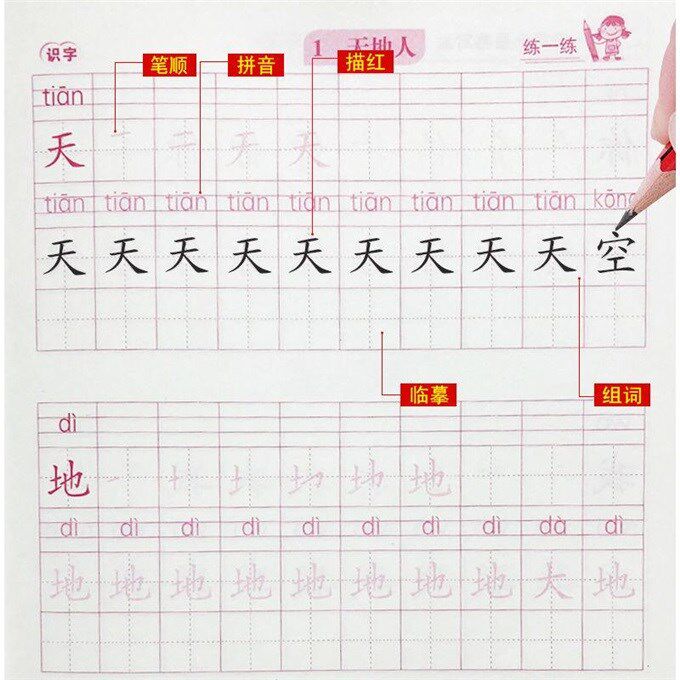 识字 1 天地人 练一练
笔顺 拼音 描红
tiān
天
tiān tiān tiān tiān tiān tiān tiān tiān tiān kōng
天 天 天 天 天 天 天 天 天 空
临摹 组词
dì
地
dì dì dì dì dì dì dì dì dà dì
地 地 地 地 地 地 地 地 大 地